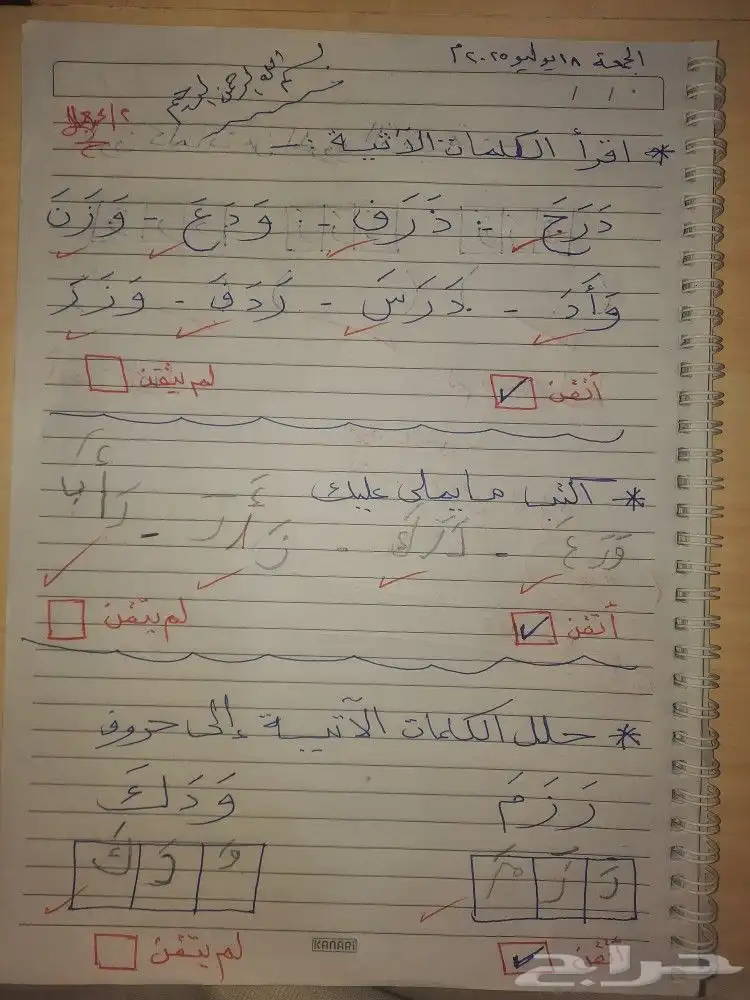 الجمعة ١٨ يوليو ٢٠٢٥ م
بسم الله الرحمن الرحيم
* اقرأ الكلمات الآتية :-
دَرَجَ - ذَرَفَ - وَدَعَ - وَزَنَ
وَأَدَ - دَرَسَ - رَدَفَ - وَزَرَ
أتقن لم يتقن
* اكتب ما يملى عليك
وَرَعَ - دَرَكَ - -
أتقن لم يتقن
* حلل الكلمات الآتية إلى حروف
رَزَمَ وَدَكَ
رَ زَ مَ وَ دَ كَ
أتقن لم يتقن
KANARI
حراج